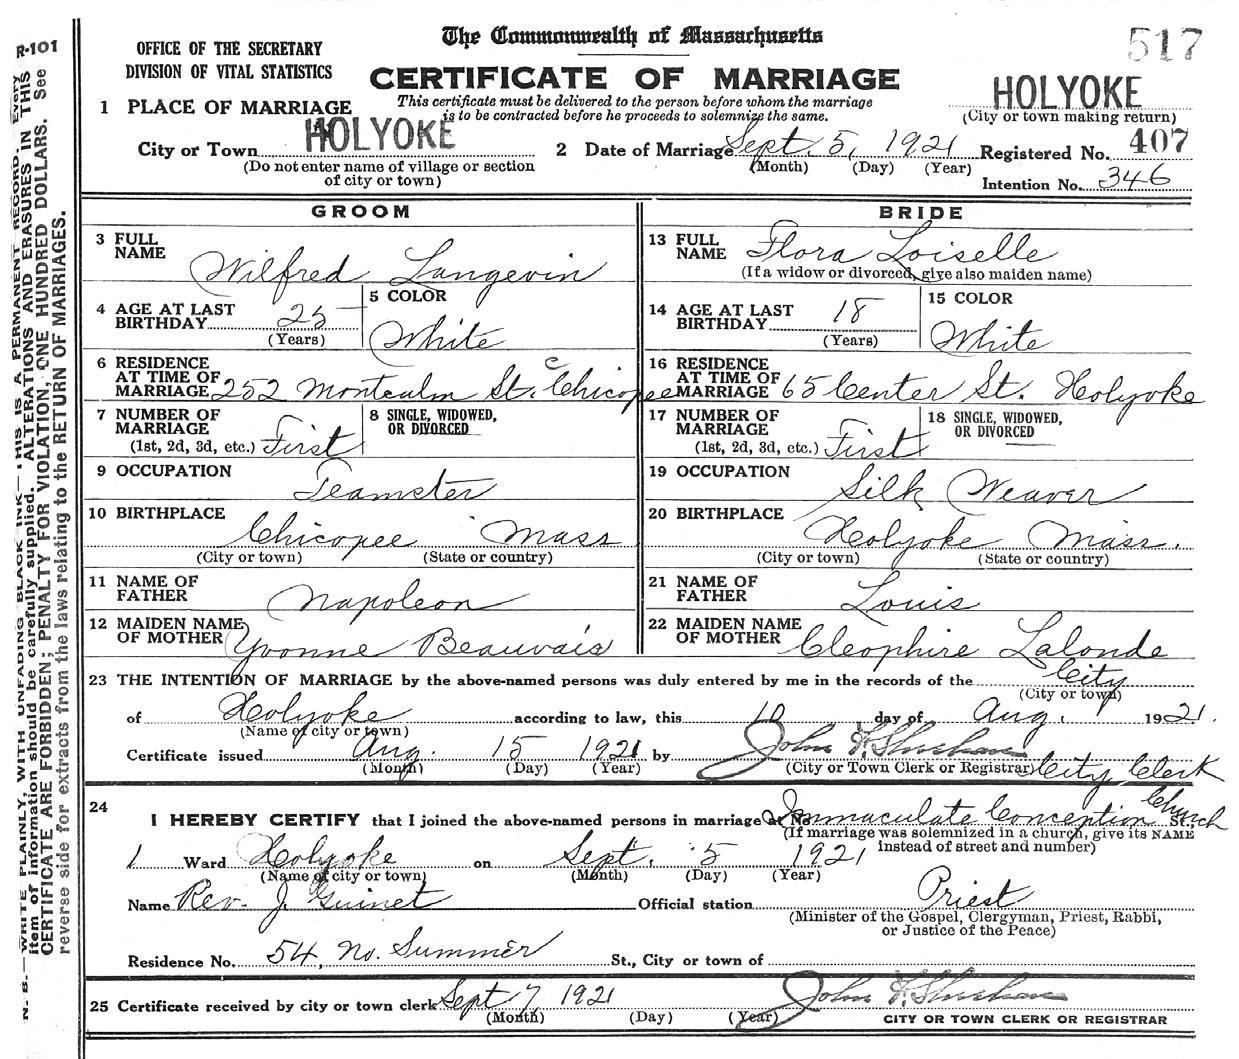 The Commonwealth of Massachusetts
517
R-101
OFFICE OF THE SECRETARY
DIVISION OF VITAL STATISTICS
CERTIFICATE OF MARRIAGE
This certificate must be delivered to the person before whom the marriage
is to be contracted before he proceeds to solemnize the same.
HOLYOKE
(City or town making return)
1 PLACE OF MARRIAGE
City or Town HOLYOKE
(Do not enter name of village or section
of city or town)
2 Date of Marriage Sept. 5, 1921
(Month) (Day) (Year)
Registered No. 407
Intention No. 346
GROOM
3 FULL NAME Wilfred Langevin
4 AGE AT LAST BIRTHDAY 25
(Years)
5 COLOR White
6 RESIDENCE AT TIME OF MARRIAGE 252 Montcalm St. Chicopee
7 NUMBER OF MARRIAGE
(1st, 2d, 3d, etc.) First
8 SINGLE, WIDOWED, OR DIVORCED
9 OCCUPATION Teamster
10 BIRTHPLACE Chicopee Mass
(City or town) (State or country)
11 NAME OF FATHER Napoleon
12 MAIDEN NAME OF MOTHER Yvonne Beauvais
BRIDE
13 FULL NAME Flora Loiselle
(If a widow or divorced, give also maiden name)
14 AGE AT LAST BIRTHDAY 18
(Years)
15 COLOR White
16 RESIDENCE AT TIME OF MARRIAGE 65 Center St. Holyoke
17 NUMBER OF MARRIAGE
(1st, 2d, 3d, etc.) First
18 SINGLE, WIDOWED, OR DIVORCED
19 OCCUPATION Silk Weaver
20 BIRTHPLACE Holyoke Mass.
(City or town) (State or country)
21 NAME OF FATHER Louis
22 MAIDEN NAME OF MOTHER Cleophire Lalonde
23 THE INTENTION OF MARRIAGE by the above-named persons was duly entered by me in the records of the City
(City or town)
of Holyoke according to law, this 10 day of Aug. 1921.
(Name of city or town)
Certificate issued Aug. 15 1921 by John F. Sheehan
(Month) (Day) (Year) (City or Town Clerk or Registrar) City Clerk
24
I HEREBY CERTIFY that I joined the above-named persons in marriage at No. Immaculate Conception Church St.
(If marriage was solemnized in a church, give its NAME
instead of street and number)
1 Ward Holyoke on Sept. 5 1921
(Name of city or town) (Month) (Day) (Year)
Name Rev. J. Guinet Official station Priest
(Minister of the Gospel, Clergyman, Priest, Rabbi,
or Justice of the Peace)
Residence No. 54, No. Summer St., City or town of
25 Certificate received by city or town clerk Sept 7, 1921 John F. Sheehan
(Month) (Day) (Year) CITY OR TOWN CLERK OR REGISTRAR
N. B.—WRITE PLAINLY, WITH UNFADING BLACK INK—THIS IS A PERMANENT RECORD. Every
item of information should be carefully supplied. ALTERATIONS AND ERASURES IN THIS
CERTIFICATE ARE FORBIDDEN; PENALTY FOR VIOLATION, ONE HUNDRED DOLLARS. See
reverse side for extracts from the laws relating to the RETURN OF MARRIAGES.